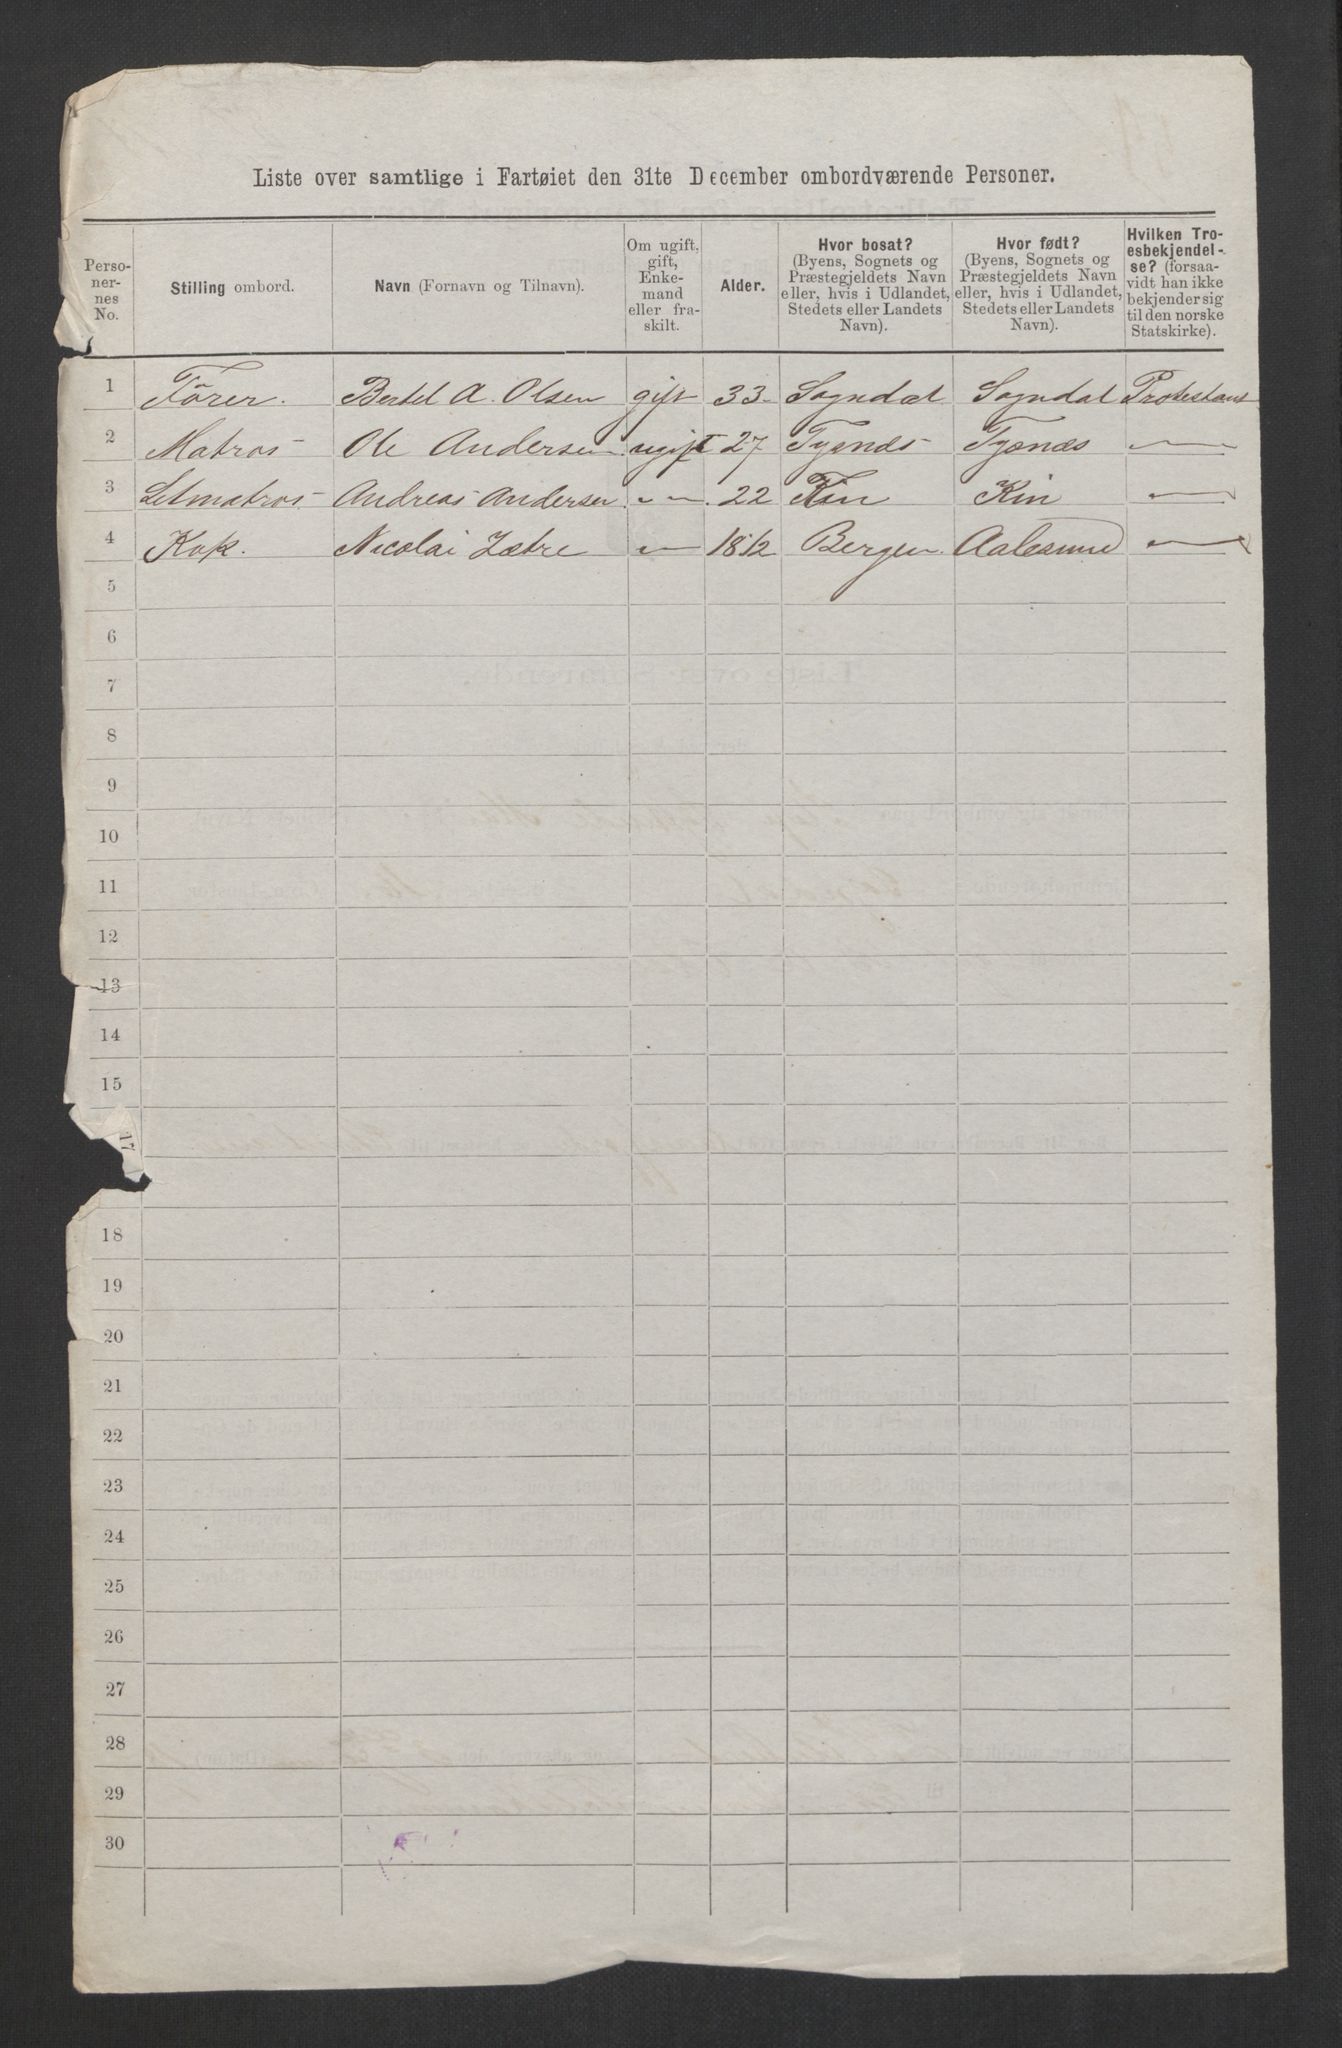 Liste over samtlige i Fartøiet den 31te December ombordværende Personer.
Perso-
ner-
nes
No.
Stilling ombord.
Navn (Fornavn og Tilnavn).
Om ugift,
gift,
Enke-
mand
eller fra-
skilt.
Alder.
Hvor bosat?
(Byens, Sognets og
Præstegjeldets Navn
eller, hvis i Udlandet,
Stedets eller Landets
Navn).
Hvor født?
(Byens, Sognets og
Præstegjeldets Navn
eller, hvis i Udlandet,
Stedets eller Landets
Navn).
Hvilken Tro-
esbekjendel-
se? (forsaa-
vidt han ikke
bekjender sig
til den norske
Statskirke).
1 Förer. Bertel A. Olsen gift 33 Sogndal Sogndal Protestant
2 Matros Ole Andersen ugift 27 Tysnæs Tysnæs — " —
3 Letmatros Andreas Andersen — " — 22 Kin Kin — " —
4 Kok. Nicolai Zætre — " — 18 1/2 Bergen Aalesund — " —
5
6
7
8
9
10
11
12
13
14
15
17
18
19
20
21
22
23
24
25
26
27
28
29
30